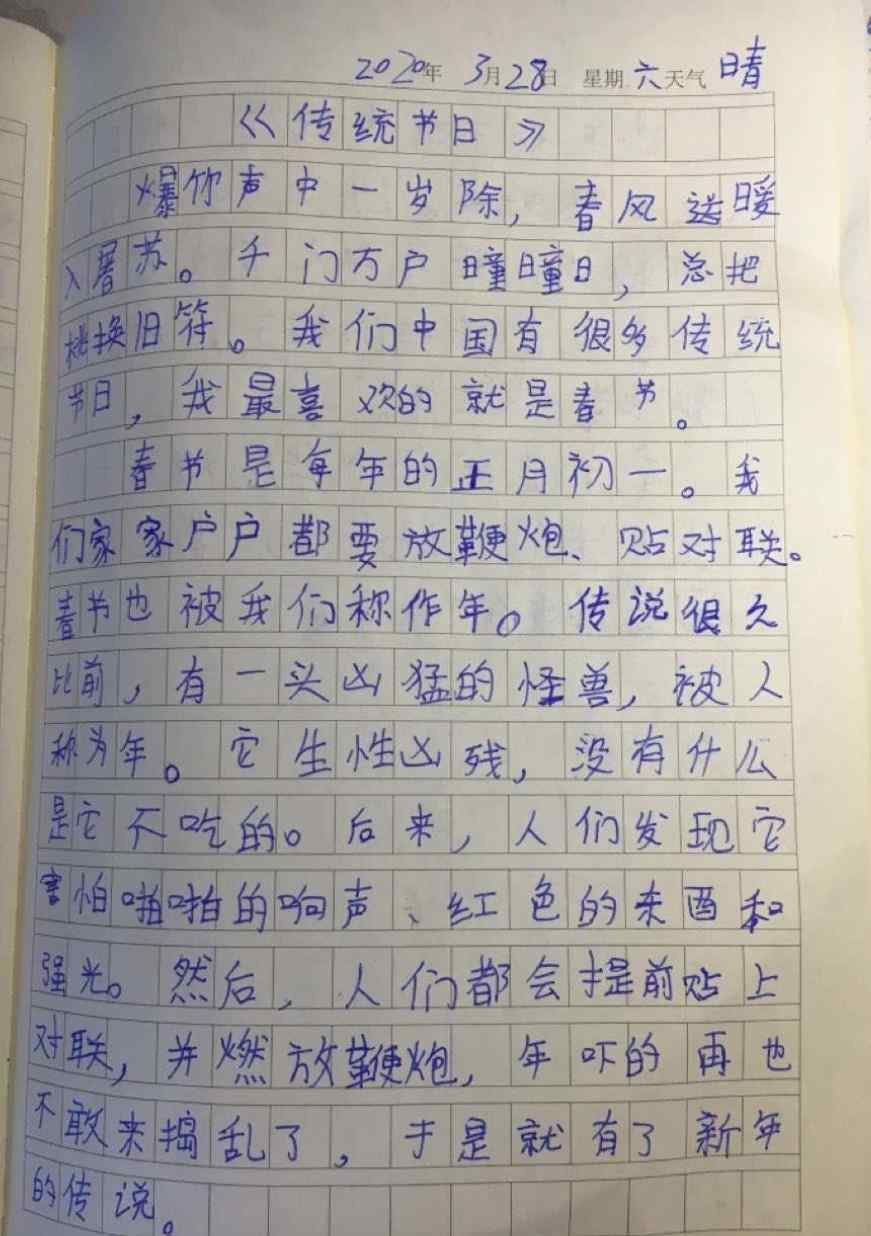 2020年 3月28日 星期六天气 晴
《传统节日》
爆竹声中一岁除，春风送暖
入屠苏。千门万户瞳瞳日，总把
桃换旧符。我们中国有很多传统
节日，我最喜欢的就是春节。
春节是每年的正月初一。我
们家家户户都要放鞭炮、贴对联。
春节也被我们称作年。传说很久
比前，有一头凶猛的怪兽，被人
称为年。它生性凶残，没有什么
是它不吃的。后来，人们发现它
害怕啪啪的响声、红色的东酉和
强光。然后，人们都会提前贴上
对联，并燃放鞭炮，年吓的再也
不敢来捣乱了，于是就有了新年
的传说。